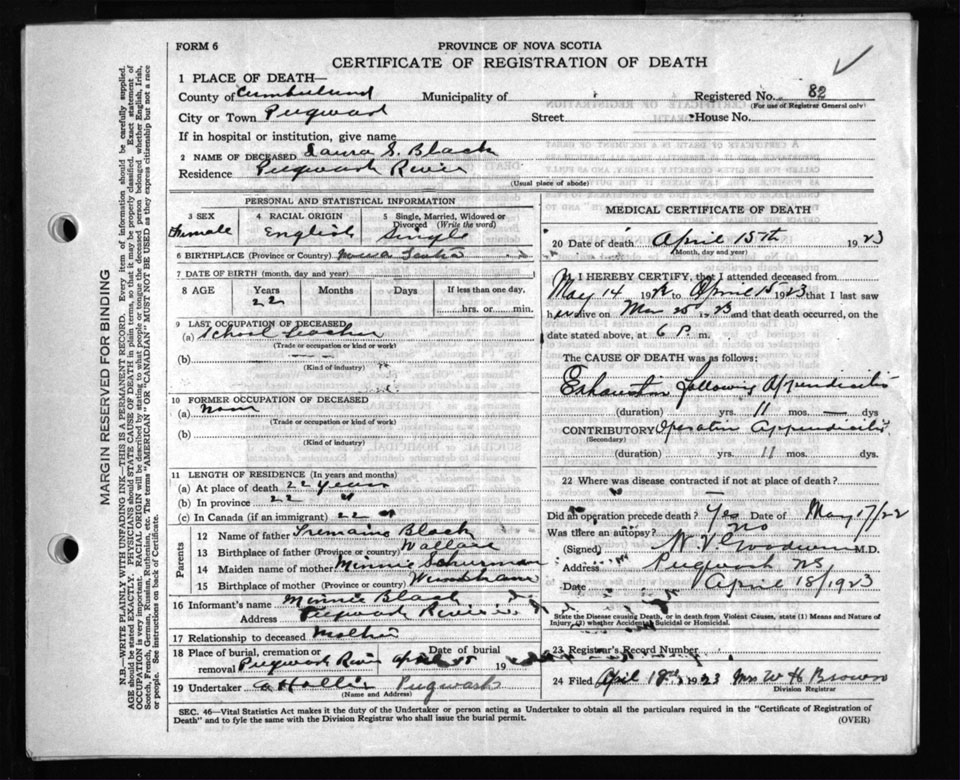 FORM 6
PROVINCE OF NOVA SCOTIA
CERTIFICATE OF REGISTRATION OF DEATH
1 PLACE OF DEATH—
County of Cumberland Municipality of Registered No. 82
(For use of Registrar General only)
City or Town Pugwash Street House No.
If in hospital or institution, give name
2 NAME OF DECEASED Laura S. Black
Residence Pugwash River
(Usual place of abode)
PERSONAL AND STATISTICAL INFORMATION
3 SEX 4 RACIAL ORIGIN 5 Single, Married, Widowed or Divorced (Write the word)
Female English Single
6 BIRTHPLACE (Province or Country) Nova Scotia
7 DATE OF BIRTH (month, day and year)
8 AGE Years Months Days If less than one day,
22 hrs. or min.
9 LAST OCCUPATION OF DECEASED
(a) School teacher
(Trade or occupation or kind or work)
(b)
(Kind of industry)
10 FORMER OCCUPATION OF DECEASED
(a) None
(Trade or occupation or kind of work)
(b)
(Kind of industry)
11 LENGTH OF RESIDENCE (In years and months)
(a) At place of death 22 years
(b) In province 22 "
(c) In Canada (if an immigrant) 22 "
Parents
12 Name of father Tremaine Black
13 Birthplace of father (Province or country) Wallace
14 Maiden name of mother Minnie Schurman
15 Birthplace of mother (Province or country)
16 Informant's name Minnie Black
Address Pugwash River
17 Relationship to deceased Mother
18 Place of burial, cremation or removal Pugwash River Date of burial April 19
19 Undertaker Pugwash
(Name and Address)
MEDICAL CERTIFICATE OF DEATH
20 Date of death April 15th 1923
(Month, day and year)
I HEREBY CERTIFY, that I attended deceased from
May 14 1922 to April 15 1923 that I last saw
her alive on 23 and that death occurred, on the
date stated above, at 6 P. m.
The CAUSE OF DEATH was as follows:
Exhaustion following Appendicitis
(duration) yrs. 11 mos. — dys
CONTRIBUTORY Operation Appendicitis
(Secondary)
(duration) yrs. 11 mos. dys.
22 Where was disease contracted if not at place of death?
Did an operation precede death? Yes Date of May 17/22
Was there an autopsy? No
(Signed) M.D.
Address Pugwash NS
Date April 18/1923
State the Disease causing Death, or in death from Violent Causes, state (1) Means and Nature of Injury, (2) whether Accidental, Suicidal or Homicidal.
23 Registrar's Record Number
24 Filed April 18th 1923 Mrs W H Brown
Division Registrar
SEC. 46—Vital Statistics Act makes it the duty of the Undertaker or person acting as Undertaker to obtain all the particulars required in the "Certificate of Registration of
Death" and to fyle the same with the Division Registrar who shall issue the burial permit.
(OVER)
MARGIN RESERVED FOR BINDING
N.B.—WRITE PLAINLY WITH UNFADING INK—THIS IS A PERMANENT RECORD. Every item of information should be carefully supplied.
AGE should be stated EXACTLY. PHYSICIANS should STATE CAUSE OF DEATH in plain terms, so that it may be properly classified. Exact statement of
OCCUPATION is very important. RACIAL ORIGIN will be described by stating to what people or tongue the deceased person belonged whether English, Irish,
Scotch, French, German, Russian, Ruthenian, etc. The terms "AMERICAN" OR "CANADIAN" MUST NOT BE USED as they express citizenship but not a race
or people. See instructions on back of Certificate.